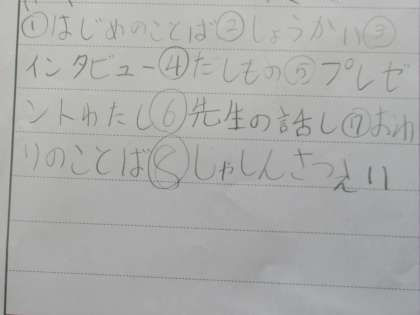 ①はじめのことば②しょうかい③
インタビュー④だしもの⑤プレゼ
ントわたし⑥先生の話し⑦おわ
りのことば⑧しゃしんさつえい